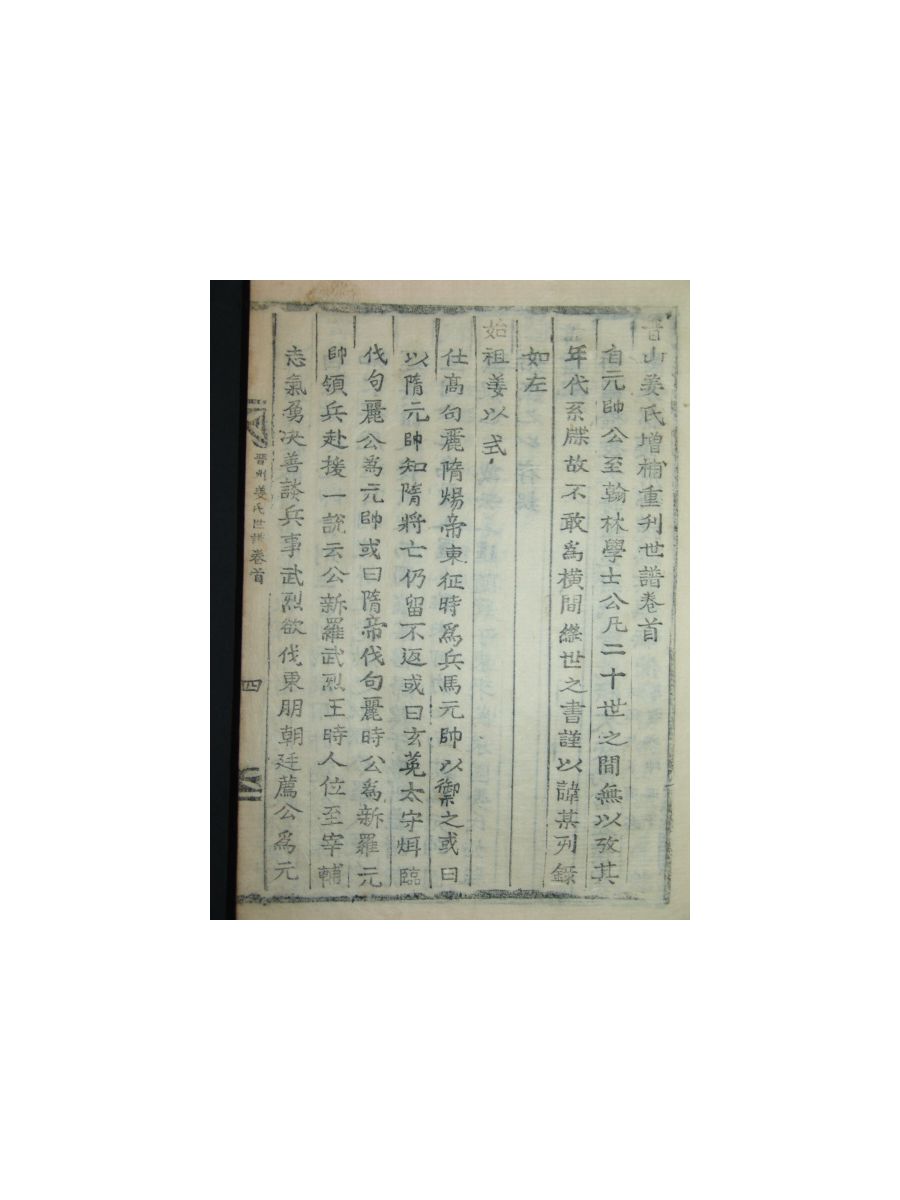 晉山姜氏增補重刊世譜卷首
自元帥公至翰林學士公凡二十世之間無以攷其
年代系牒故不敢爲橫間繼世之書謹以諱某列錄
如左
始祖姜以式
仕高句麗隋煬帝東征時爲兵馬元帥以禦之或曰
以隋元帥知隋將亡仍留不返或曰玄菟太守弭臨
伐句麗公爲元帥或曰隋帝伐句麗時公爲新羅元
帥領兵赴援一說云公新羅武烈王時人位至宰輔
志氣勇决善談兵事武烈欲伐東朋朝廷薦公爲元
晋州姜氏世譜卷首
四